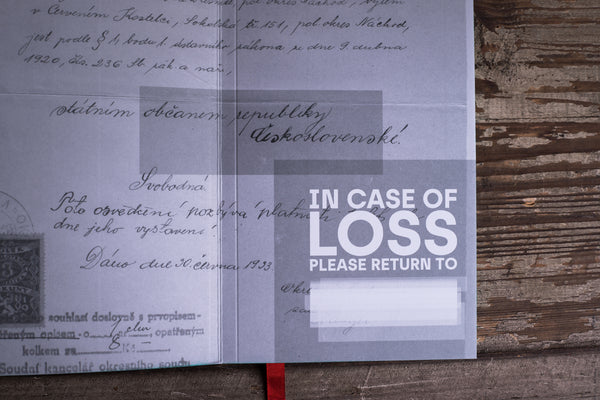 v Červeném Kostelci, Sokolská tř. 151, pol. okres Náchod,
jest podle § 1, bodu 1. ústavního zákona ze dne 9. dubna
1920, čís. 236 Sb. zák. a nař.,
státním občanem republiky
Československé.
Svobodná
Toto osvědčení pozbývá platnosti
dne jeho vystavení.
Dáno dne 30. června 1933.
souhlasí doslovně s prvopisem-
opisem - o opatřeným
kolkem za Kč
Soudní kancelář okresního soudu
IN CASE OF
LOSS
PLEASE RETURN TO